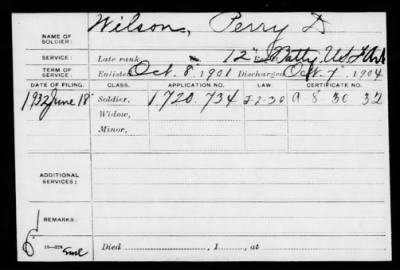 NAME OF SOLDIER: Wilson, Perry D
SERVICE: Late rank, 12" Batty. U.S.
TERM OF SERVICE: Enlisted Oct. 8", 1901 Discharged Oct. 7", 1904
DATE OF FILING. CLASS. APPLICATION NO. LAW. CERTIFICATE NO.
1932 June 18 Soldier, 1.720.734 A 8 30 32
Widow,
Minor,
ADDITIONAL SERVICES:
REMARKS:
Died , 1 , at